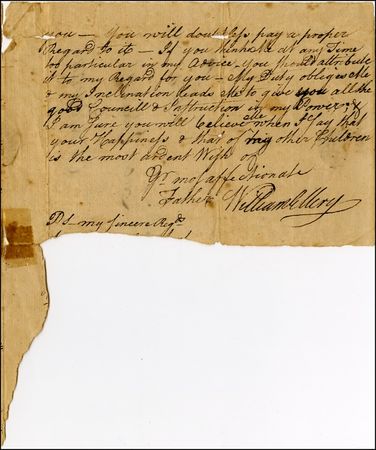 you — You will doubtless pay a proper
Regard to it — If you think Me at any Time
too particular in my Advice you should attribute
it to my Regard for you — My Duty obliges Me
& my Inclination Leads Me to give you all the
good Councill & Instruction in my Power; &
I am Sure you will believe Me when I Say that
your Happiness & that of my other Children
is the most ardent Wish of
Yr. most affectionate
Father William Ellery
PS— my Sincere Regds